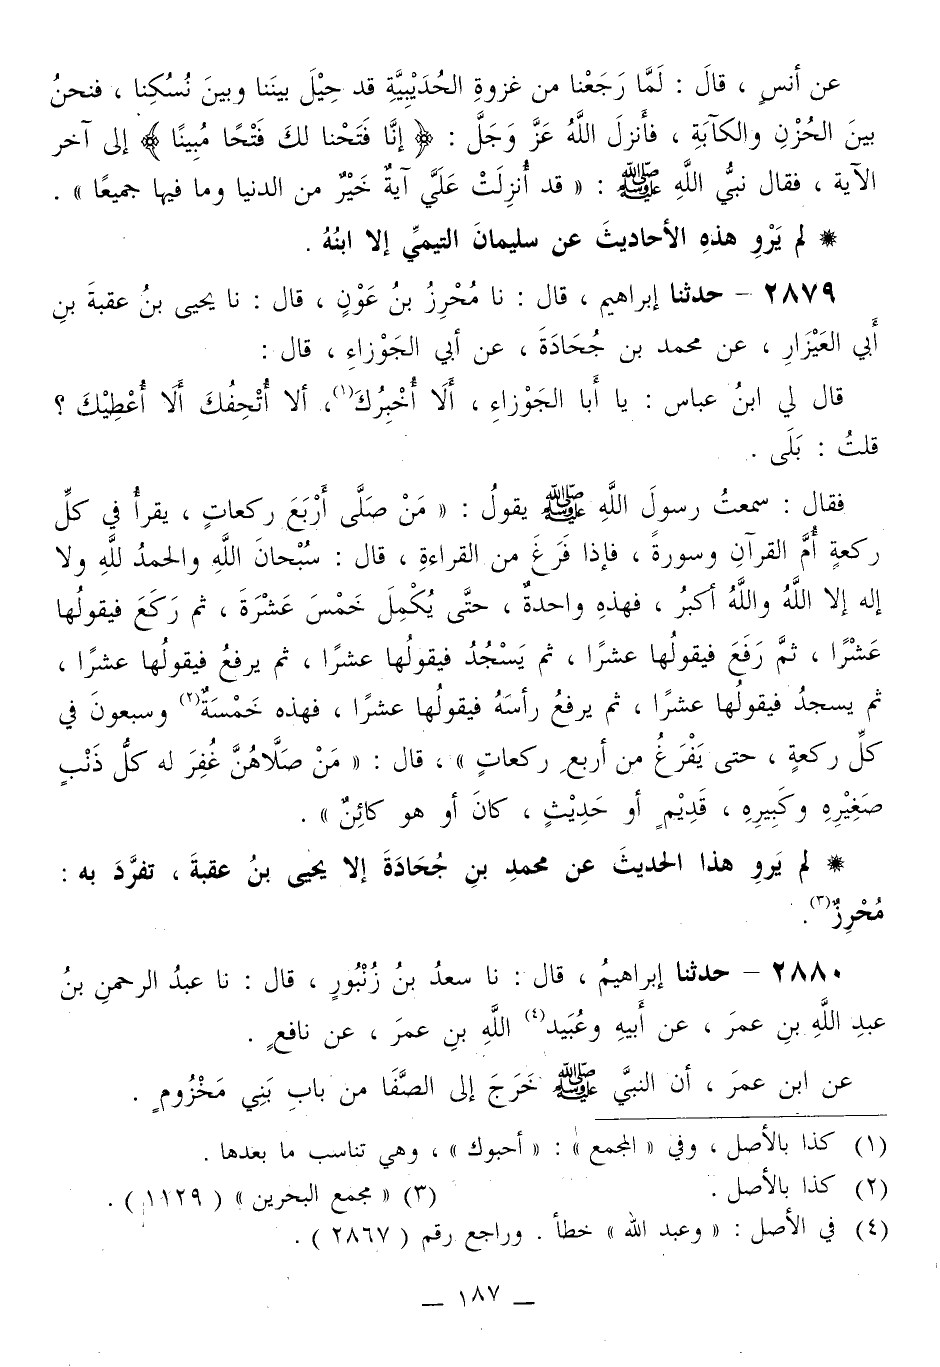 عن أنسٍ ، قالَ : لَمَّا رَجَعْنا من غزوةِ الحُدَيْبِيَّةِ قد حِيْلَ بيننا وبينَ نُسُكِنا ، فنحنُ
بينَ الحُزْنِ والكآبَةِ ، فأَنزلَ اللَّهُ عَزَّ وَجَلَّ : ﴿ إنَّا فَتَحْنا لكَ فَتْحًا مُبِينًا ﴾ إلى آخر
الآية ، فقال نبيُّ اللَّهِ ﷺ : « قد أُنزِلَتْ عَلَيَّ آيةٌ خَيْرٌ من الدنيا وما فيها جميعًا » .
* لم يَرْوِ هذهِ الأحاديثَ عن سليمانَ التيميِّ إلا ابنُهُ .
٢٨٧٩ – حدثنا إبراهيم ، قال : نا مُحْرِزُ بنُ عَوْنٍ ، قال : نا يحيى بنُ عقبةَ بنِ
أَبي العَيْزَارِ ، عن محمد بن جُحَادَةَ ، عن أبي الجَوْزاءِ ، قال :
قال لي ابنُ عباس : يا أَبا الجَوْزاءِ ، أَلَا أُخْبِرُكَ(١)، ألا أُتْحِفُكَ أَلَا أُعْطِيْكَ ؟
قلتُ : بَلَى .
فقال : سمعتُ رسولَ اللَّهِ ﷺ يقولُ : « مَنْ صَلَّى أَرْبَعَ ركعاتٍ ، يقرأُ في كلِّ
ركعةٍ أُمَّ القرآنِ وسورةً ، فإذا فَرَغَ من القراءةِ ، قال : سُبْحانَ اللَّهِ والحمدُ للَّهِ ولا
إله إلا اللَّهُ واللَّهُ أكبرُ ، فهذهِ واحدةٌ ، حتَّى يُكْمِلَ خَمْسَ عَشْرَةَ ، ثم رَكَعَ فيقولُها
عَشْرًا ، ثمَّ رَفَعَ فيقولُها عشرًا ، ثم يَسْجُدُ فيقولُها عشرًا ، ثم يرفعُ فيقولُها عشرًا ،
ثم يسجدُ فيقولُها عشرًا ، ثم يرفعُ رأسَهُ فيقولُها عشرًا ، فهذه خَمْسَةٌ(٢) وسبعونَ في
كلِّ ركعةٍ ، حتى يَفْرَغُ من أربعِ ركعاتٍ » ، قال : « مَنْ صَلَّاهُنَّ غُفِرَ له كلُّ ذَنْبٍ
صَغِيْرِهِ وكَبِيرِهِ ، قَدِيْمٍ أو حَدِيْثٍ ، كانَ أو هو كائِنٌ » .
* لم يَروِ هذا الحديثَ عن محمدِ بنِ جُحَادَةَ إلا يحيى بنُ عقبةَ ، تفرَّدَ به :
مُحْرِزٌ(٣).
٢٨٨٠ – حدثنا إبراهيمُ ، قال : نا سعدُ بنُ زُنْبُورٍ ، قال : نا عبدُ الرحمنِ بنُ
عبدِ اللَّهِ بنِ عمرَ ، عن أَبيهِ وعُبَيد(٤) اللَّهِ بنِ عمرَ ، عن نافعٍ .
عن ابن عمرَ ، أن النبيَّ ﷺ خَرَجَ إلى الصَّفَا من بابِ بَنِي مَخْزُومٍ .
(١) كذا بالأصل ، وفي « المجمع » : « أحبوك » ، وهي تناسب ما بعدها .
(٢) كذا بالأصل . (٣) « مجمع البحرين » ( ١١٢٩ ) .
(٤) في الأصل : « وعبد الله » خطأ . وراجع رقم ( ٢٨٦٧ ) .
– ١٨٧ –